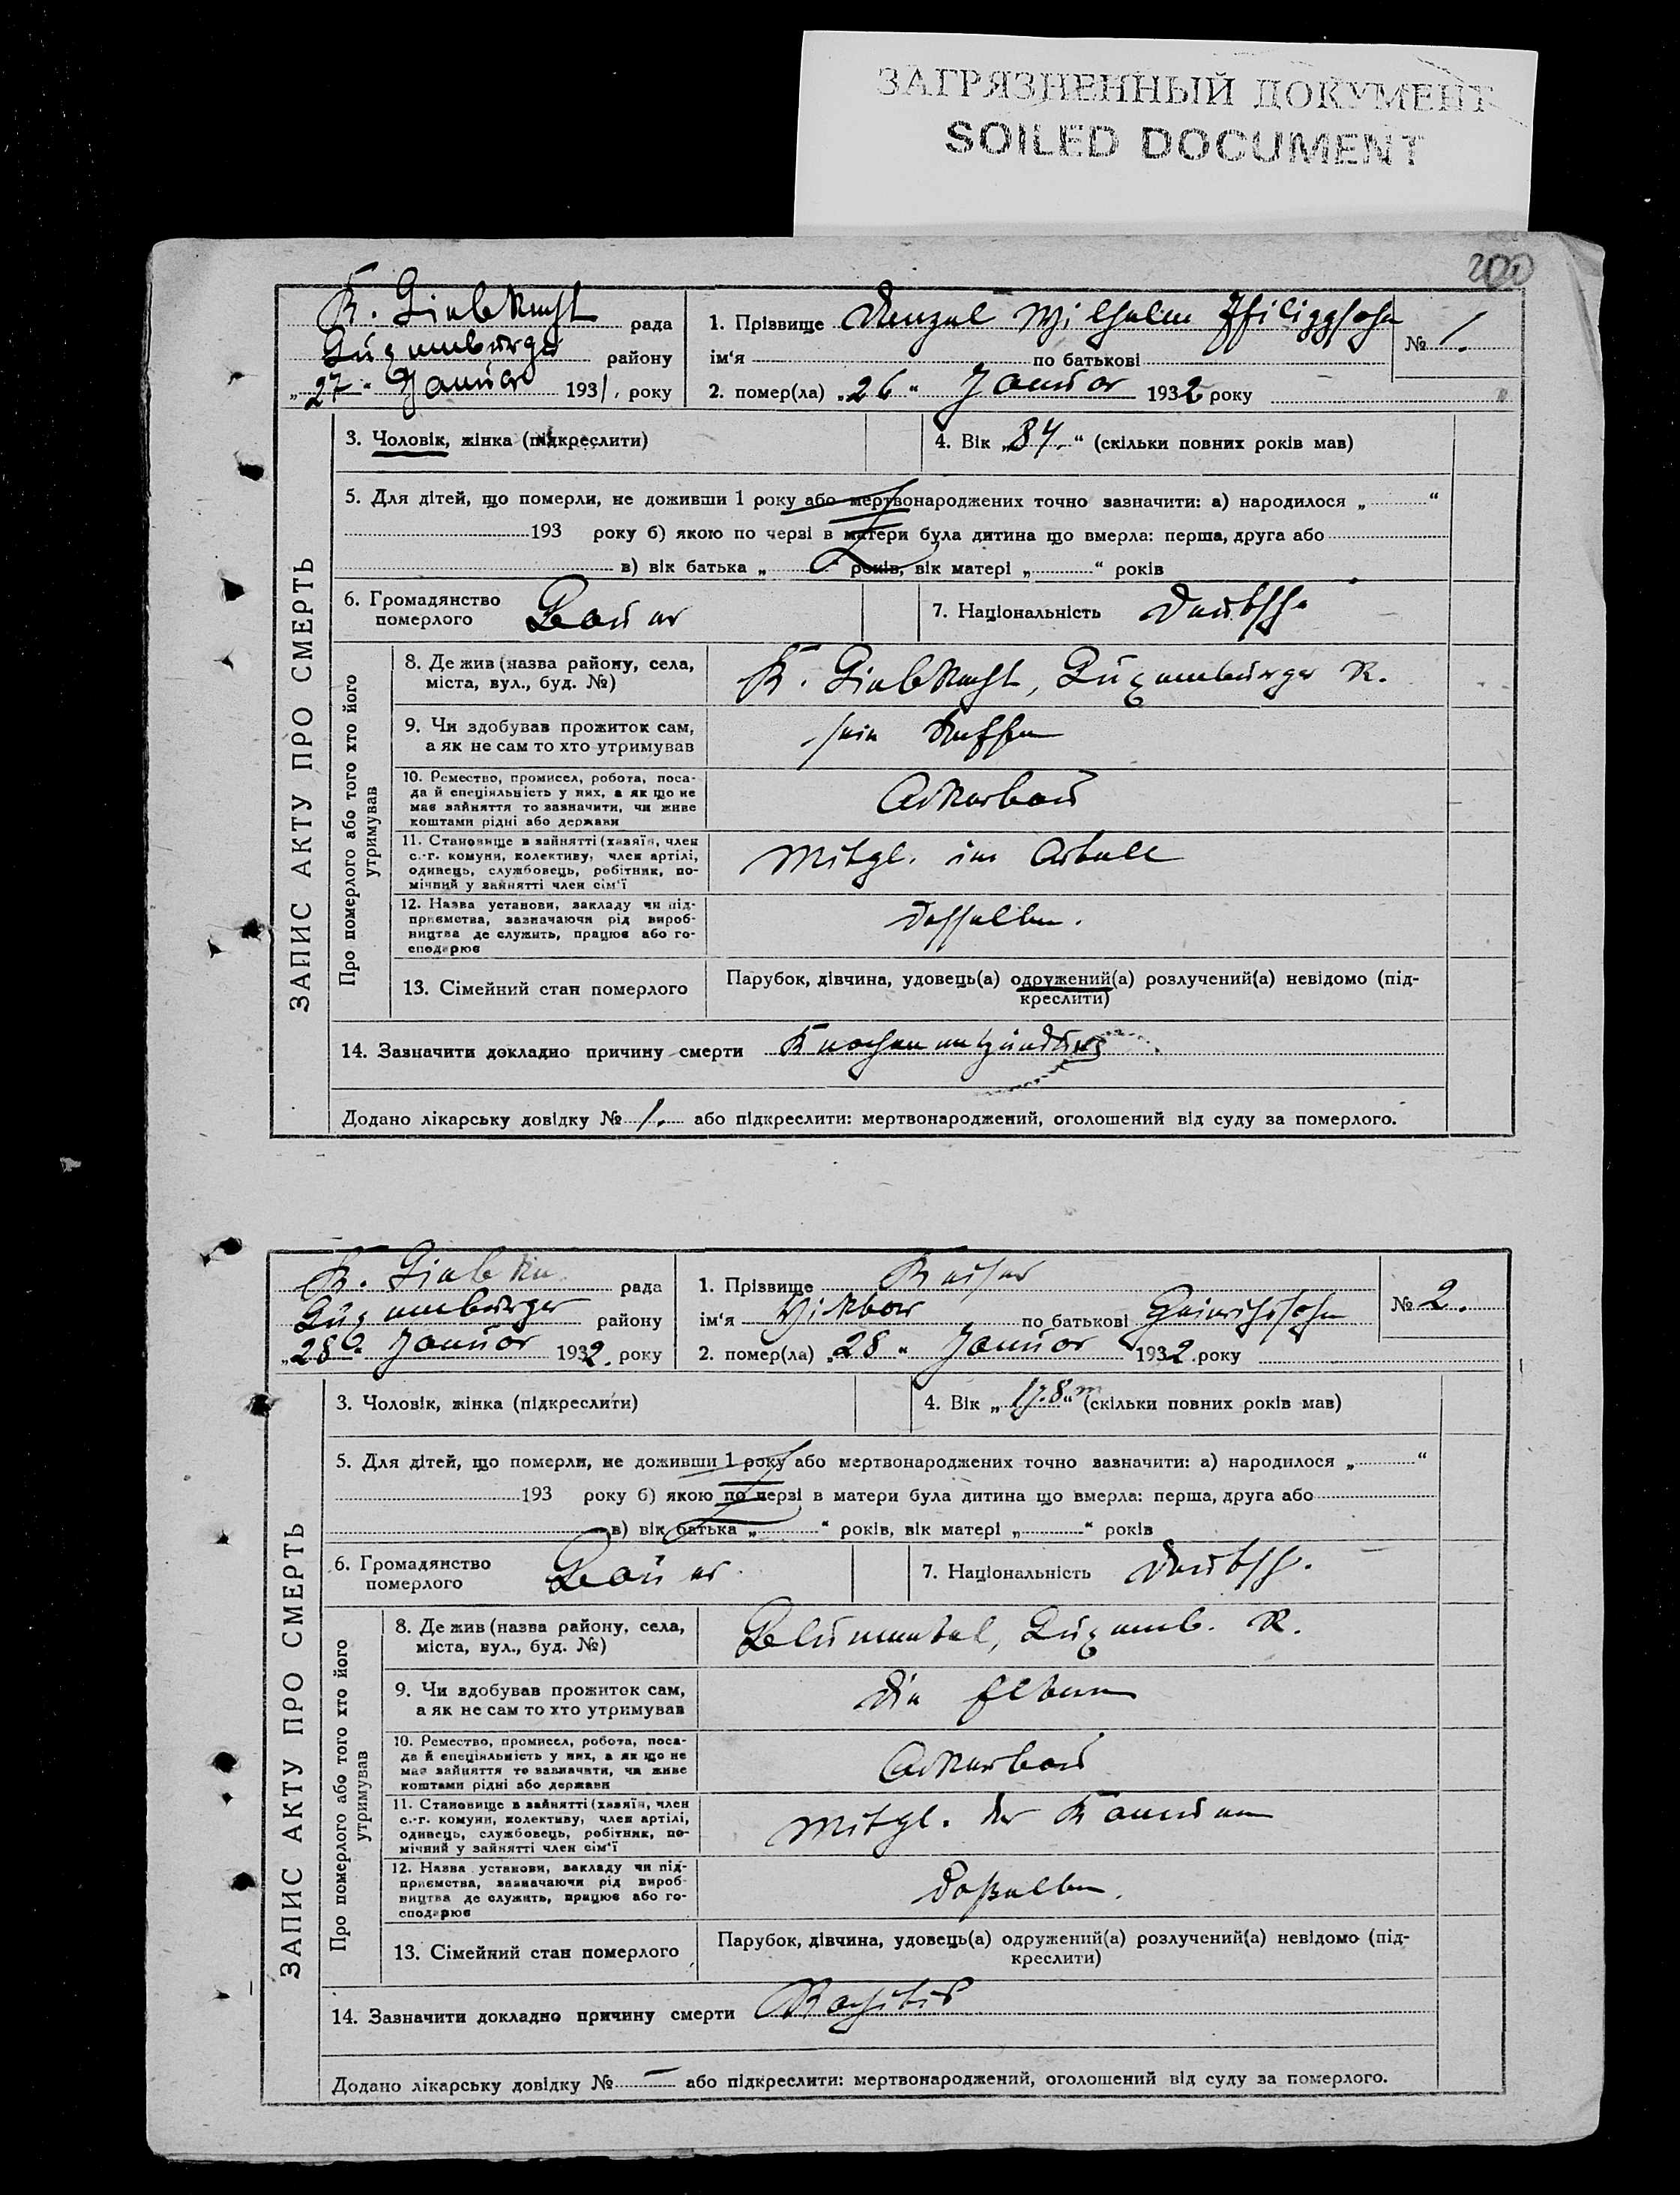 ЗАГРЯЗНЕННЫЙ ДОКУМЕНТ
SOILED DOCUMENT
200
K. Liebknecht рада
Luxemburger району
„27“ Januar 1931, року
1. Прізвище Denzel Wilhelm Philippsohn
ім‘я по батькові
№ 1.
2. помер(ла) „26“ Januar 1932 року
ЗАПИС АКТУ ПРО СМЕРТЬ
3. Чоловік, жінка (підкреслити)
4. Вік „84.“ (скільки повних років мав)
5. Для дітей, що померли, не доживши 1 року або мертвонароджених точно зазначити: а) народилося „ “
193 року б) якою по черзі в матери була дитина що вмерла: перша, друга або
в) вік батька „ “ років, вік матері „ “ років
6. Громадянство померлого Bauer
7. Національність Deutsch.
Про померлого або того хто його утримував
8. Де жив (назва району, села,
міста, вул., буд. №)
K. Liebknecht, Luxemburger R.
9. Чи здобував прожиток сам,
а як не сам то хто утримував
sein
10. Ремество, промисел, робота, поса-
да й спеціяльність у них, а як що не
має зайняття то зазначити, чи живе
коштами рідні або держави
Ackerbau
11. Становище в зайнятті (хазяїн, член
с.-г. комуни, колективу, член артілі,
одинець, службовець, робітник, по-
мічний у зайнятті член сім‘ї
Mitgl. im Artell
12. Назва установи, закладу чи під-
приємства, зазначаючи рід вироб-
ництва де служить, працює або го-
сподарює
Dasselbe.
13. Сімейний стан померлого
Парубок, дівчина, удовець(а) одружений(а) розлучений(а) невідомо (під-
креслити)
14. Зазначити докладно причину смерти Knochenentzündung
Додано лікарську довідку № 1. або підкреслити: мертвонароджений, оголошений від суду за померлого.
K. Liebkn. рада
Luxemburger району
„28“ Januar 1932. року
1. Прізвище Kaiser
ім‘я Viktor по батькові Heinrichsohn
№ 2.
2. помер(ла) „28“ Januar 1932 року
ЗАПИС АКТУ ПРО СМЕРТЬ
3. Чоловік, жінка (підкреслити)
4. Вік „1j.8m“ (скільки повних років мав)
5. Для дітей, що померли, не доживши 1 року або мертвонароджених точно зазначити: а) народилося „ “
193 року б) якою по черзі в матери була дитина що вмерла: перша, друга або
в) вік батька „ “ років, вік матері „ “ років
6. Громадянство померлого Bauer
7. Національність Deutsch.
Про померлого або того хто його утримував
8. Де жив (назва району, села,
міста, вул., буд. №)
Blumental, Luxemb. R.
9. Чи здобував прожиток сам,
а як не сам то хто утримував
die Eltern
10. Ремество, промисел, робота, поса-
да й спеціяльність у них, а як що не
має зайняття то зазначити, чи живе
коштами рідні або держави
Ackerbau
11. Становище в зайнятті (хазяїн, член
с.-г. комуни, колективу, член артілі,
одинець, службовець, робітник, по-
мічний у зайнятті член сім‘ї
Mitgl. der Komune
12. Назва установи, закладу чи під-
приємства, зазначаючи рід вироб-
ництва де служить, працює або го-
сподарює
Daßelbe.
13. Сімейний стан померлого
Парубок, дівчина, удовець(а) одружений(а) розлучений(а) невідомо (під-
креслити)
14. Зазначити докладно причину смерти Rachitis
Додано лікарську довідку № — або підкреслити: мертвонароджений, оголошений від суду за померлого.